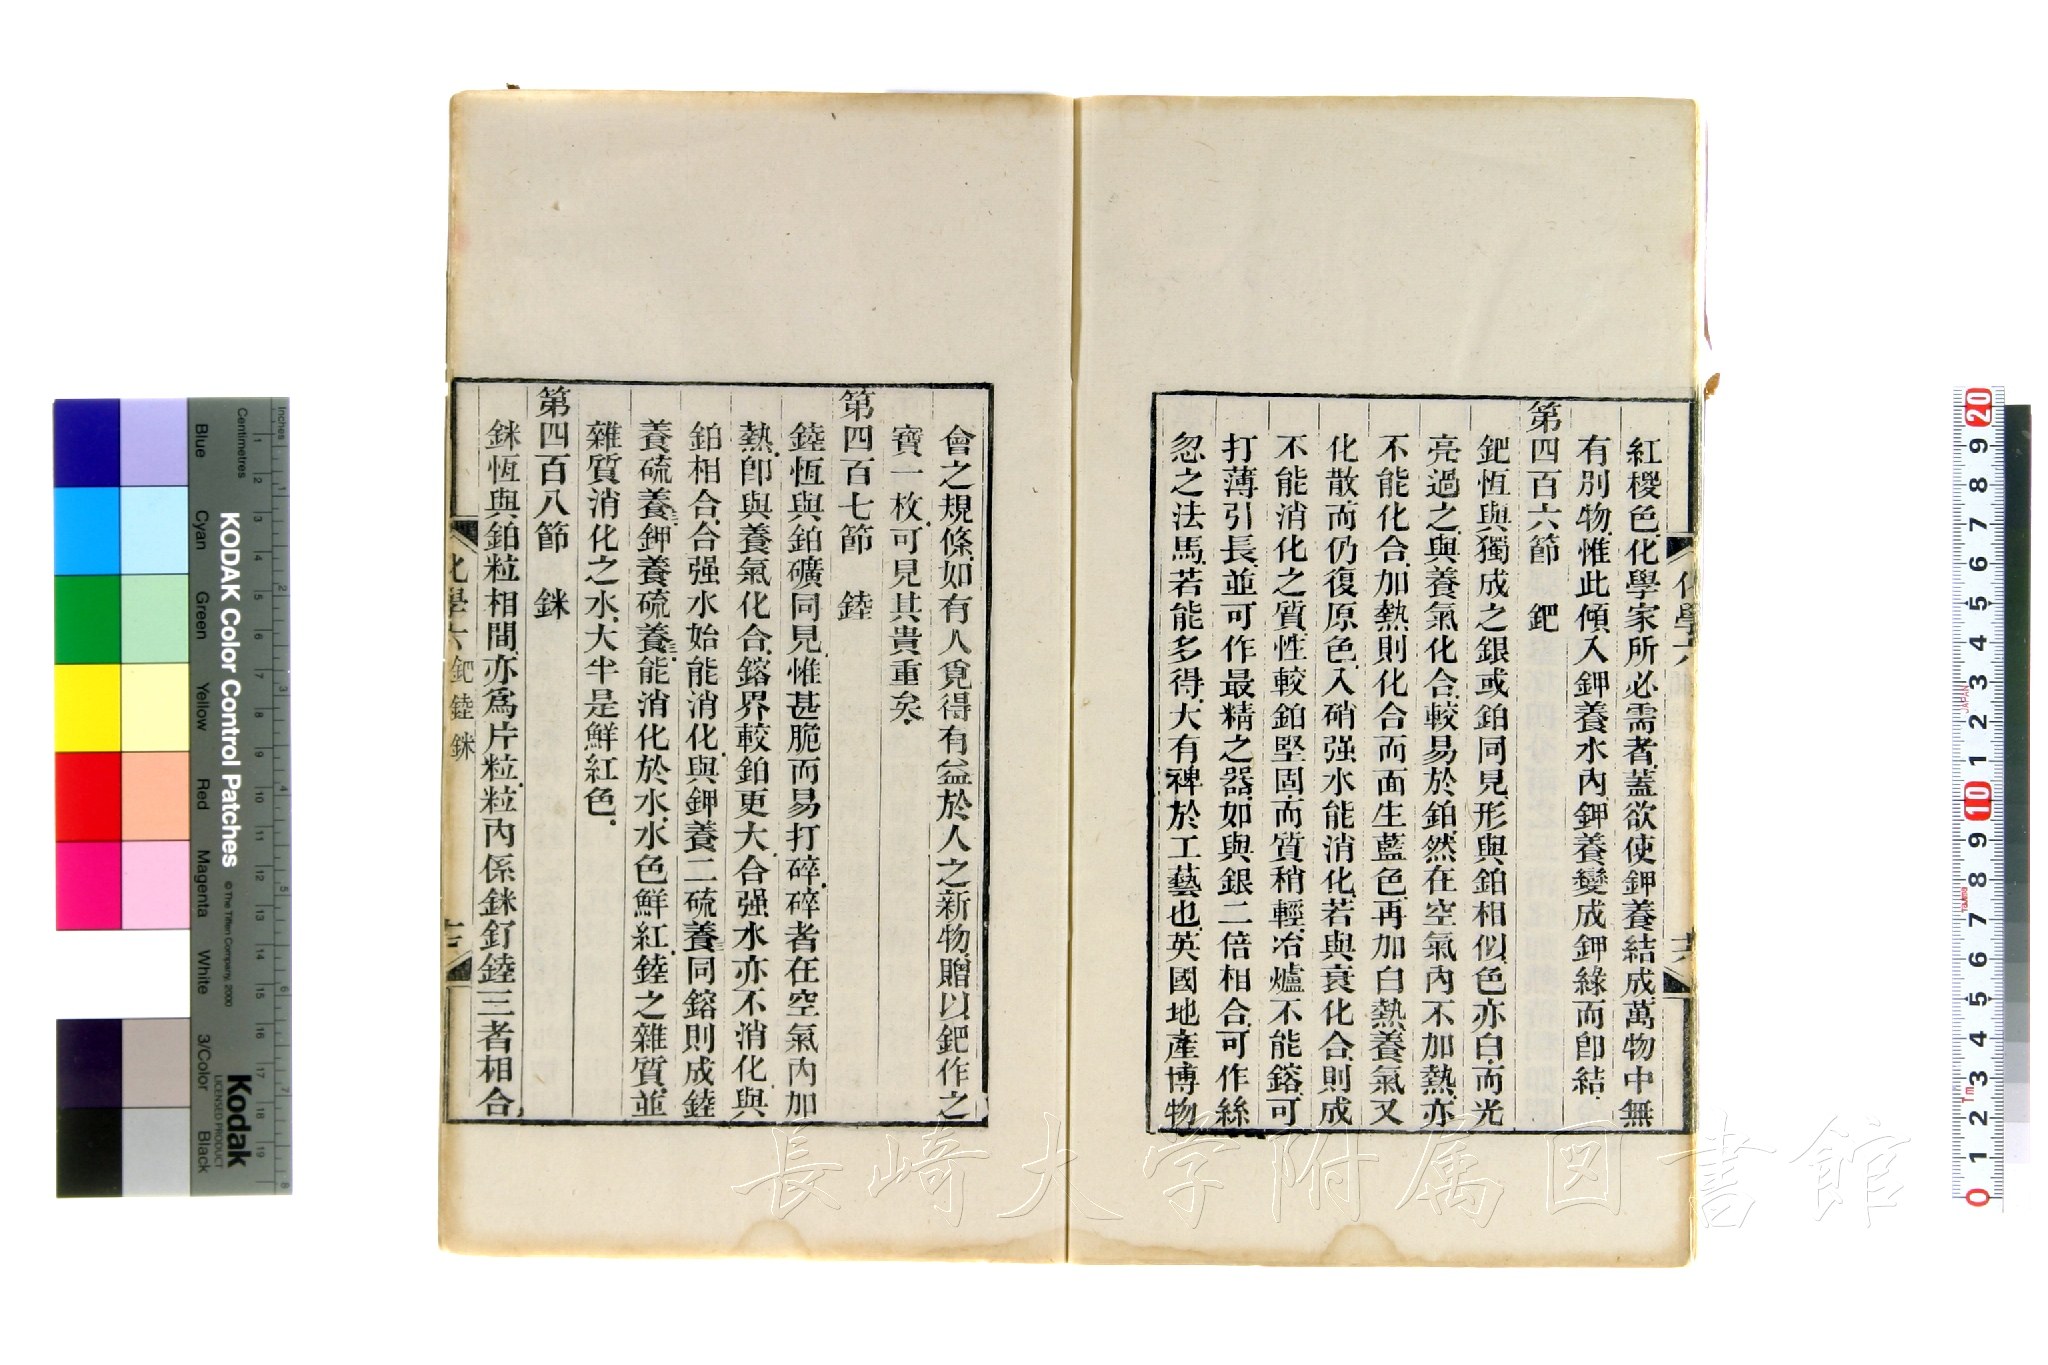 紅㮨色、化學家所必需者、蓋欲使鉀養結成萬物中無
有別物、惟此傾入鉀養水內、鉀養變成鉀綠而卽結.
第四百六節　鈀
鈀恆與獨成之銀或鉑同見、形與鉑相似、色亦白、而光
亮過之、與養氣化合、較易於鉑、然在空氣內不加熱、亦
不能化合、加熱則化合而面生藍色、再加白熱、養氣又
化散、而仍復原色、入硝强水能消化、若與衰化合、則成
不能消化之質、性較鉑堅固、而質稍輕、冶爐不能鎔、可
打薄引長、並可作最精之器、如與銀二倍相合、可作絲
忽之法馬、若能多得、大有裨於工藝也、英國地產博物
會之規條、如有人覓得有益於人之新物、贈以鈀作之
寶一枚、可見其貴重矣.
第四百七節　錴
錴恆與鉑礦同見、惟甚脆而易打碎、碎者在空氣內加
熱、卽與養氣化合、鎔界較鉑更大、合强水亦不消化、與
鉑相合、合强水始能消化、與鉀養二硫養三同鎔則成錴
養硫養三鉀養硫養三、能消化於水、水色鮮紅、錴之雜質、並
雜質消化之水、大半是鮮紅色.
第四百八節　銤
銤恆與鉑粒相間、亦爲片粒、粒內係銤釘錴三者相合、
化學六 鈀錴銤
化學六
KODAK Color Control Patches
© The Tiffen Company, 2000
Kodak
LICENSED PRODUCT
Inches
Centimetres
Blue
Cyan
Green
Yellow
Red
Magenta
White
3/Color
Black
1 2 3 4 5 6 7 8
1 2 3 4 5 6 7 8 9 10 11 12 13 14 15 16 17 18 19
20 9 8 7 6 5 4 3 2 1 10 9 8 7 6 5 4 3 2 1 0
JAPAN
Tajima
1m
長崎大学附属図書館